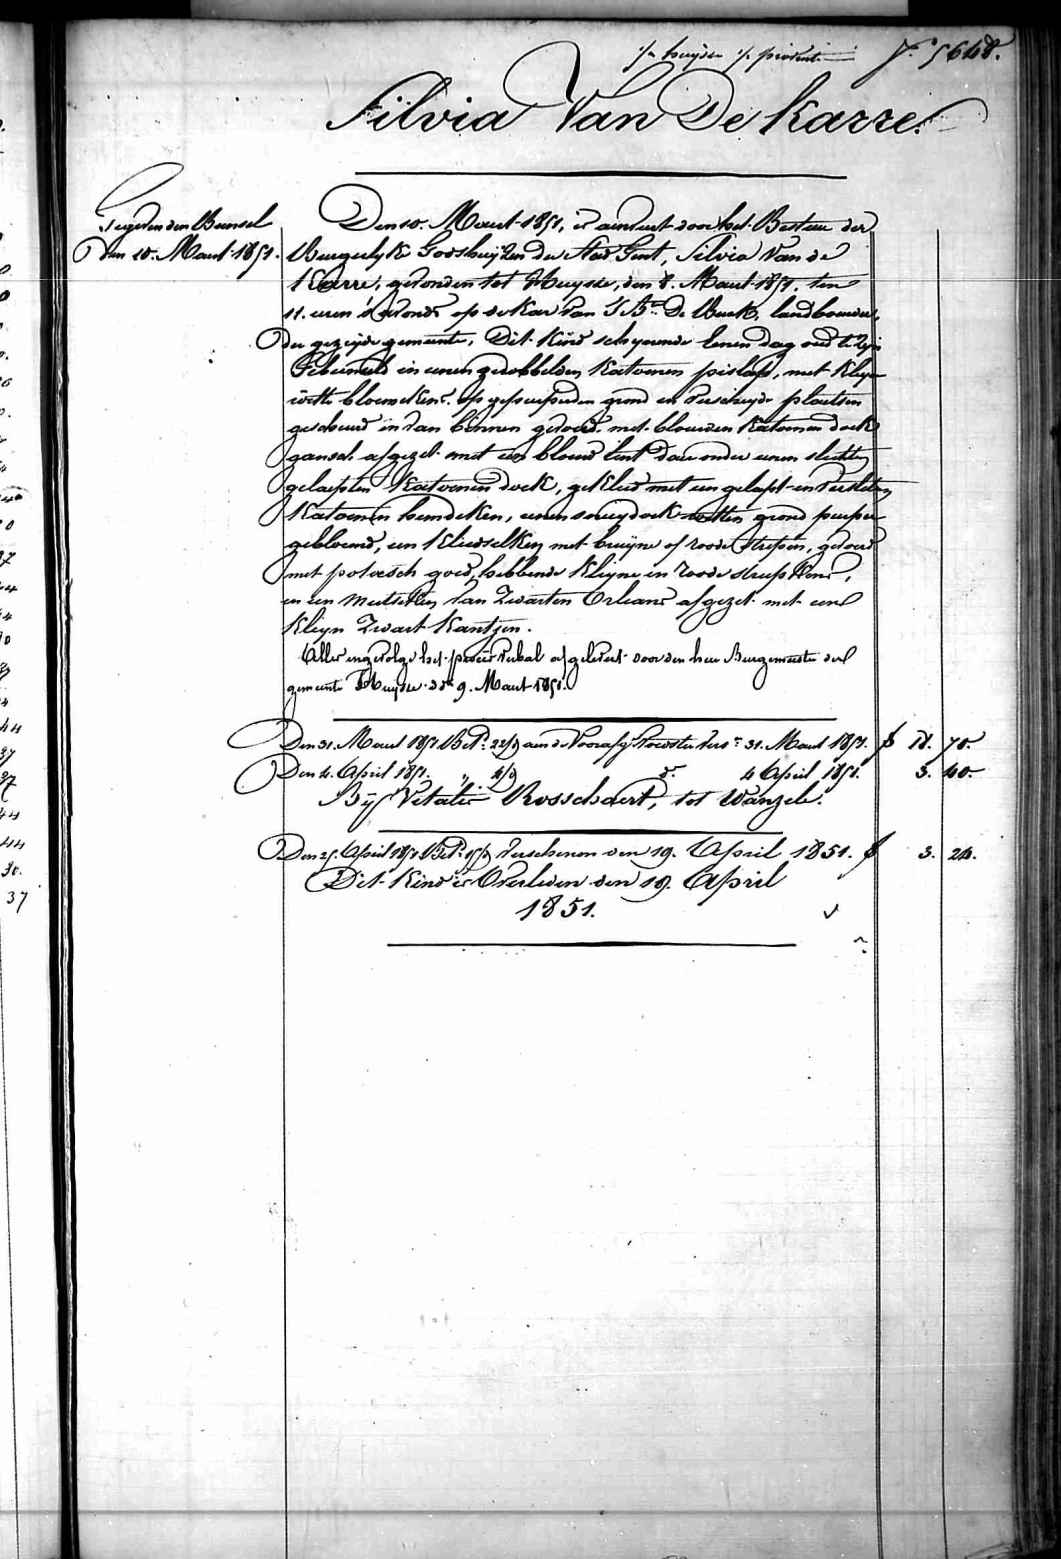 f.° 5648.
Silvia Van De Karre.
Ingeschreven
Den 10. Maart 1851.
Den 10. Maart 1851, is aenveert door het Bestuur der
Burgerlyke Godshuyzen der Stad Gent, Silvia Van de
Karre, gevonden tot Huysse, den 8. Maart 1851, ten
11. uren 's avonds op de kar van J. Bte De Buck, landbouwer,
der gezeyde gemeente, Dit kind schynende eenen dag oud te zyn
in eenen gedobbelden katoenen pislap, met kleyne
witte bloemekens op gepurperden grond en verscheyde plaetsen
gescheurd en van binnen gevoerd met blouwen katoenen doek
gansch afgezet met een blouw lint daer onder eenen slechten
gelapten katoenen doek, gekleed met een gelapt en versleten
katoenen hemdeken, eenen snuydoek witten grond purper
gebloemd, een kleedselken met bruyne of roode strepen, gevoerd
met potaesch goed, hebbende kleyne en roode streepkens,
en een mutseken van zwarten Orleans afgezet met een
kleyn zwart kantjen.
Alles ingevolge het procès verbal afgelevert door den heer Burgemeester der
gemeente Huysse dd. 9. Maart 1851.
Den 31. Maart 1851 Bet. 22/3 aen de Voorafg. Voedster vers. 31. Maart 1851. f 11. 70.
Den 4. April 1851. " 4/9 d.° 4 April 1851. 3. 40.
Bij Vitalie Rosschaert, tot Wanzele.
Den 25. April 1851 Bet. 15/9 verschenen den 19. April 1851. f 3. 24.
Dit Kind is Overleden den 19. April
1851.